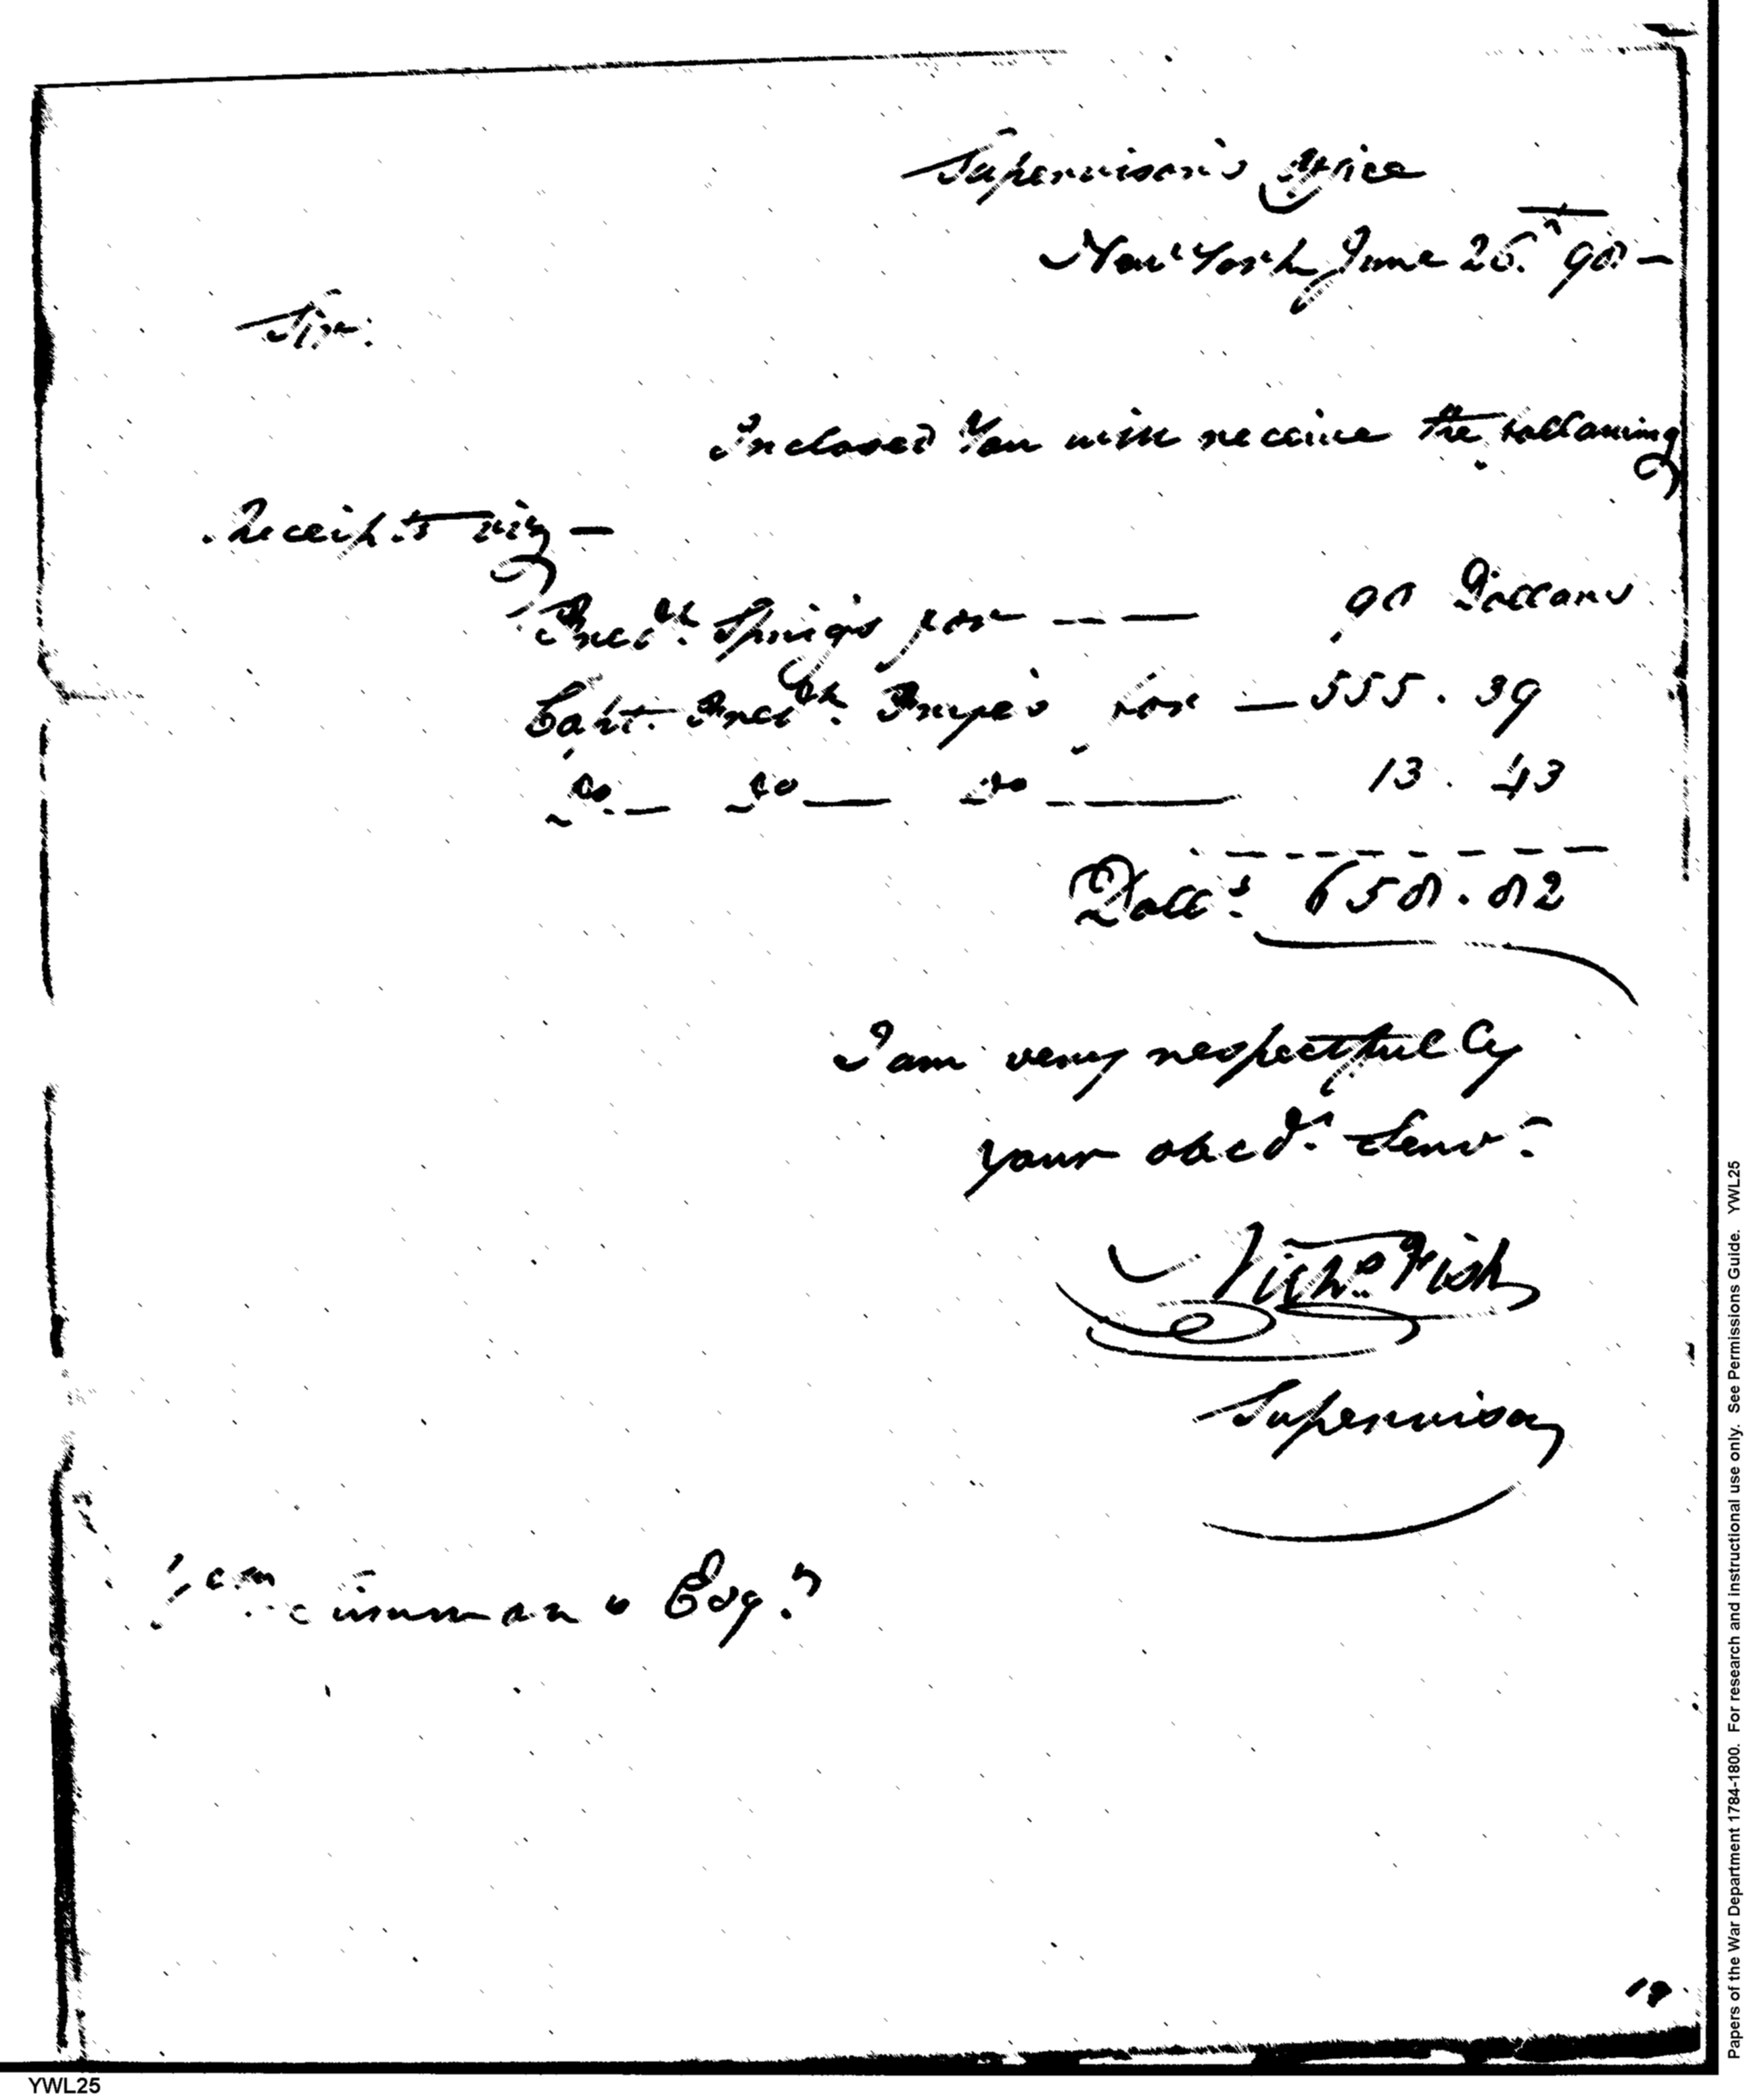 Supervisor's Office
New York June 26.th 98 —
Sir:
Inclosed You will receive the following
Receipts viz —
Fred.k Sprigs for — — — 90 Dollars
Capt. Fred.k Frye's for — 555.39
Do. — Do — Do — 13.43
Doll.s 658.82
I am very respectfully
your obed.t Serv.t
Nich.s Fish
Supervisor
Simmons Esq.r
19
Papers of the War Department 1784-1800. For research and instructional use only. See Permissions Guide. YWL25
YWL25